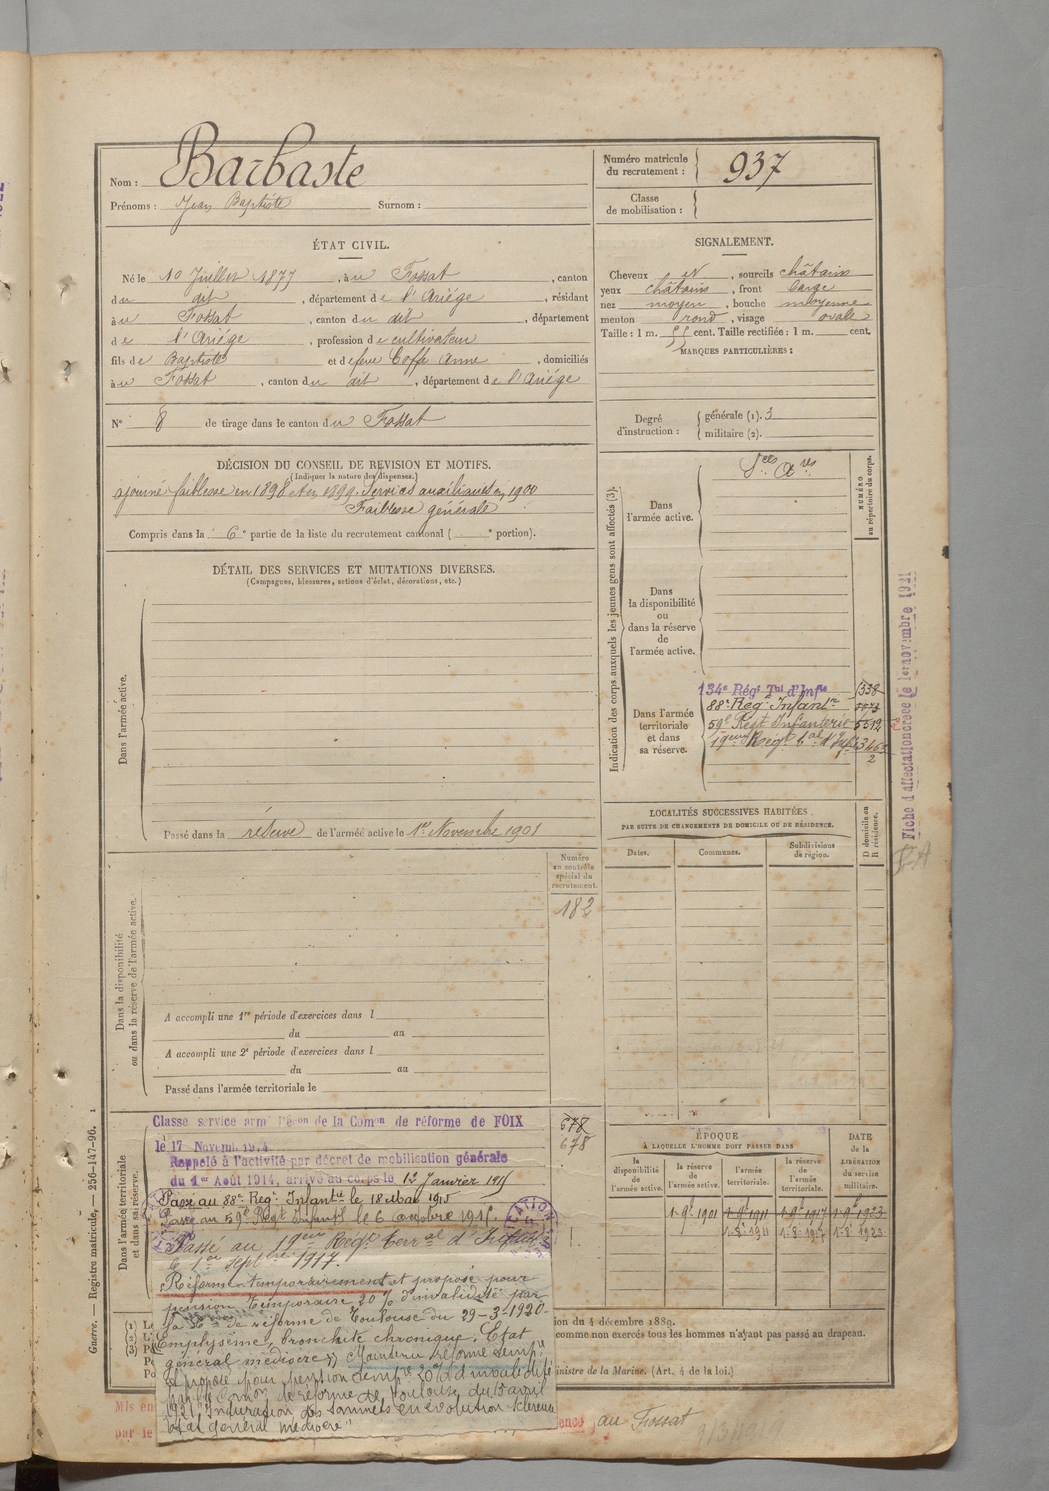 Nom : Barbaste
Prénoms : Jean Baptiste Surnom :
Numéro matricule du recrutement : 937
Classe de mobilisation :
ÉTAT CIVIL.
Né le 10 Juillet 1877, à u Fossat, canton
du dit, département de l'Ariége, résidant
à u Fossat, canton du dit, département
de l'Ariége, profession de cultivateur
fils de Baptiste et de feue Coffe Anne, domiciliés
à u Fossat, canton du dit, département de l'Ariége
N° 8 de tirage dans le canton du Fossat
SIGNALEMENT.
Cheveux et, sourcils châtains
yeux châtains, front large
nez moyen, bouche moyenne
menton rond, visage ovale
Taille : 1 m. 55 cent. Taille rectifiée : 1 m. cent.
MARQUES PARTICULIÈRES :
Degré d'instruction : générale (1). 3
militaire (2).
DÉCISION DU CONSEIL DE REVISION ET MOTIFS.
(Indiquer la nature des dispenses.)
ajourné faiblesse en 1898 et en 1899. Services auxiliaires en 1900
Faiblesse générale
Compris dans la 6e partie de la liste du recrutement cantonal ( e portion).
DÉTAIL DES SERVICES ET MUTATIONS DIVERSES.
(Campagnes, blessures, actions d'éclat, décorations, etc.)
Dans l'armée active.
Passé dans la réserve de l'armée active le 1er Novembre 1901
Indication des corps auxquels les jeunes gens sont affectés (3).
NUMÉRO au répertoire du corps.
Dans l'armée active.
Sces Ares
Dans la disponibilité ou dans la réserve de l'armée active.
Dans l'armée territoriale et dans sa réserve.
134e Régt Tal d'Infie 1338
88e Reg Infantrie
59e Regt Infanterie 5512
19eme Regt tal d'Inf
2
Fiche d'affectation créée le 1er novembre 1921
LOCALITÉS SUCCESSIVES HABITÉES
PAR SUITE DE CHANGEMENTS DE DOMICILE OU DE RÉSIDENCE.
D domicile ou R résidence.
Dates. Communes. Subdivisions de région.
Dans la disponibilité ou dans la réserve de l'armée active.
Numéro au contrôle spécial du recrutement.
182
A accompli une 1re période d'exercices dans l
du au
A accompli une 2e période d'exercices dans l
du au
Passé dans l'armée territoriale le
Dans l'armée territoriale et dans sa réserve.
Classe service armé Déc​on de la Comon de réforme de FOIX
le 17 Novemb. 1914
678
678
Rappelé à l'activité par décret de mobilisation générale
du 1er Août 1914, arrivé au corps le 12 Janvier 1915
Passé au 88e Regt Infantie le 18 Mai 1915
Passé au 59e Regt Infantie le 6 octobre 1915
Passé au 19eme Régt Terral d'Infie
le 1er septbre 1917.
Réformé temporairement et proposé pour
pension temporaire 20 % d'invalidité par
la Con de réforme de Toulouse du 29-3-1920
Emphysème, bronchite chronique. État
général médiocre. Maintenu réformé tempre
et proposé pour pension tempre 20% d'invalidité
par la Comon de réforme de Toulouse du 15 avril
1921 "Induration des sommets en évolution scléreuse
état général médiocre"
ÉPOQUE
À LAQUELLE L'HOMME DOIT PASSER DANS
DATE DE LA LIBÉRATION du service militaire.
la disponibilité de l'armée active. la réserve de l'armée active. l'armée territoriale. la réserve de l'armée territoriale.
1-9e 1901 1-9e 1911 1-9e 1917 1-9e 1923
1-8e 1911 1-8e 1917 1-8e 1923
Guerre. — Registre matricule, — 256-147-96.
(1) Le
(2) L'i
(3) P
Po
Po
ion du 4 décembre 1889.
comme non exercés tous les hommes n'ayant pas passé au drapeau.
inistre de la Marine. (Art. 4 de la loi.)
Mis en
par le
ence au Fossat